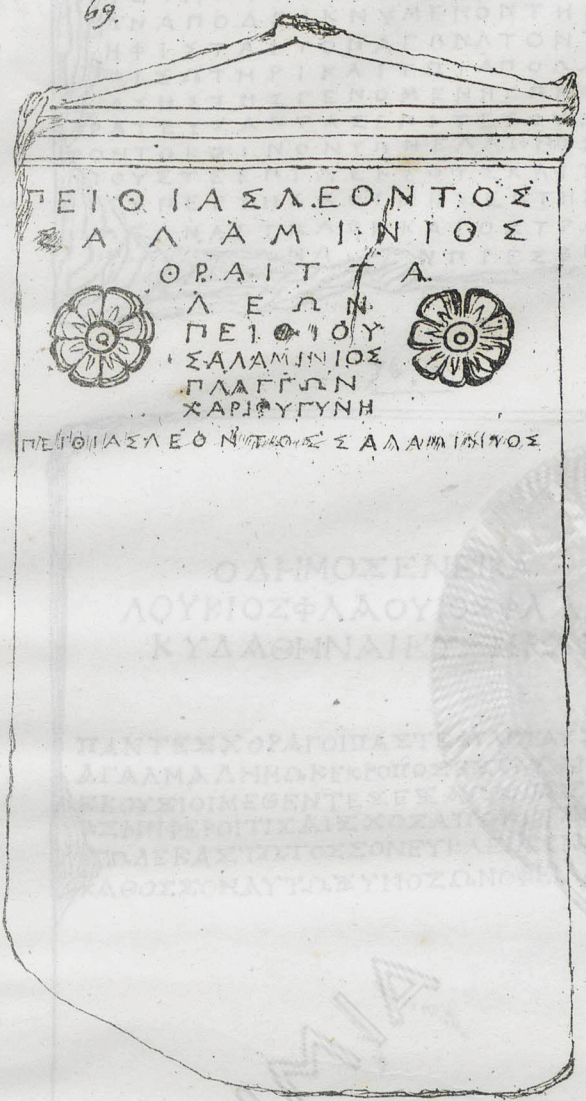 69.
ΠΕΙΘΙΑΣΛΕΟΝΤΟΣ
ΣΑΛΑΜΙΝΙΟΣ
ΘΡΑΙΤΤΑ
ΛΕΩΝ
ΠΕΙΘΙΟΥ
ΣΑΛΑΜΙΝΙΟΣ
ΠΛΑΓΓΩΝ
ΓΥΝΗ
ΠΕΙΘΙΑΣΛΕΟΝΤΟΣΣΑΛΑΜΙΝΙΟΣ